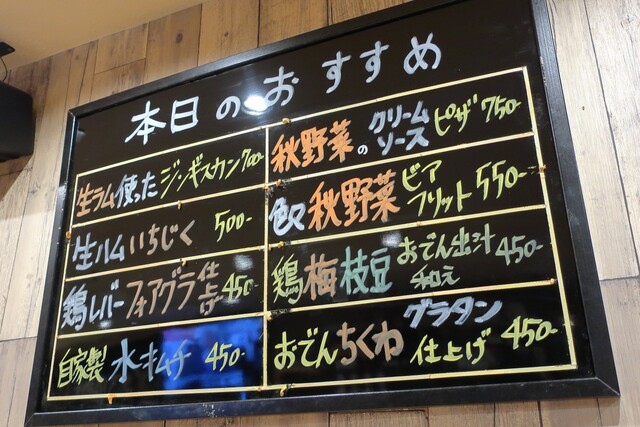 本日のおすすめ
生ラム使ったジンギスカン700-
生ハムいちじく 500-
鶏レバーフォアグラ仕上げ 450-
自家製 水キムチ 450-
秋野菜のクリームソースピザ 750-
秋野菜ビアフリット 550-
鶏梅枝豆おでん出汁和え 450-
おでんちくわグラタン仕上げ 450-